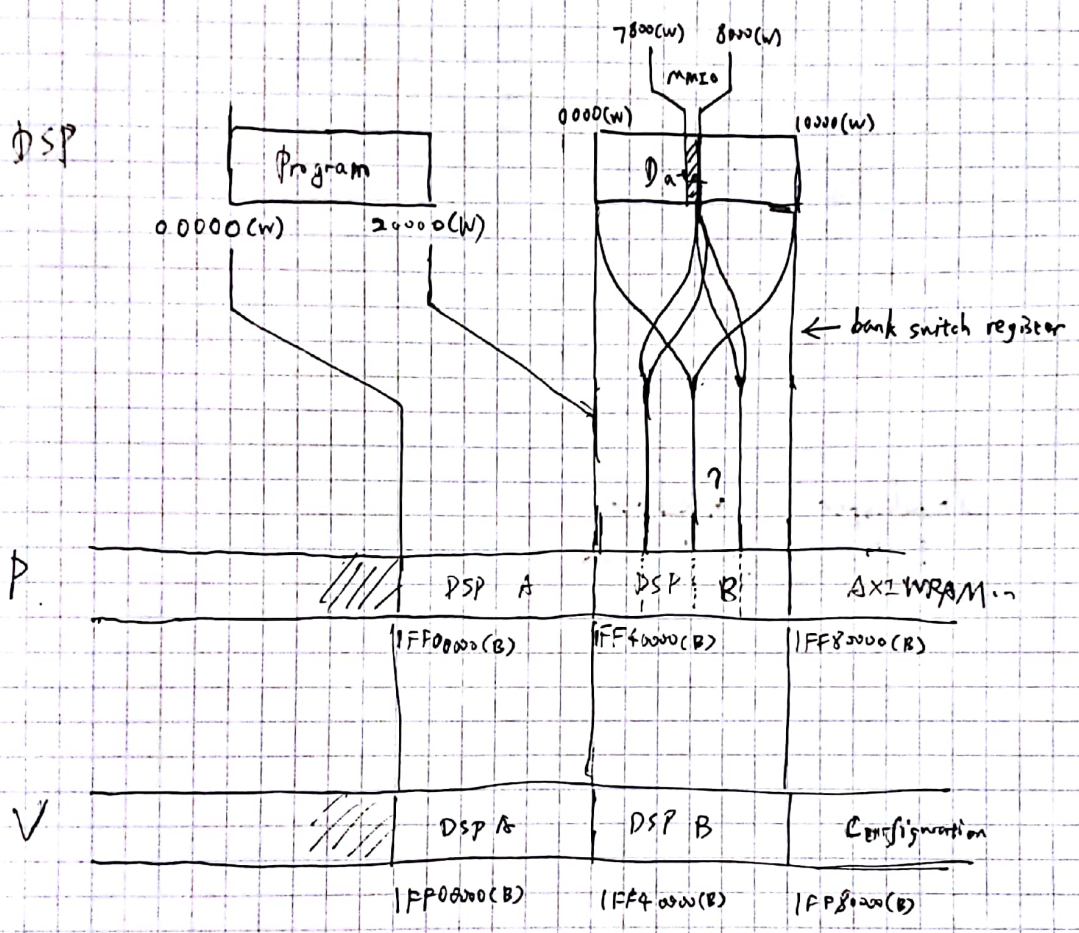 7800(W) 8000(W)
MMIO
0000(W) 10000(W)
DSP
Program
Data
00000(W) 20000(W)
← bank switch register
?
P
DSP A
DSP B
AXI WRAM...
1FF00000(B) 1FF40000(B) 1FF80000(B)
V
DSP A
DSP B
Configuration
1FF00000(B) 1FF40000(B) 1FF80000(B)